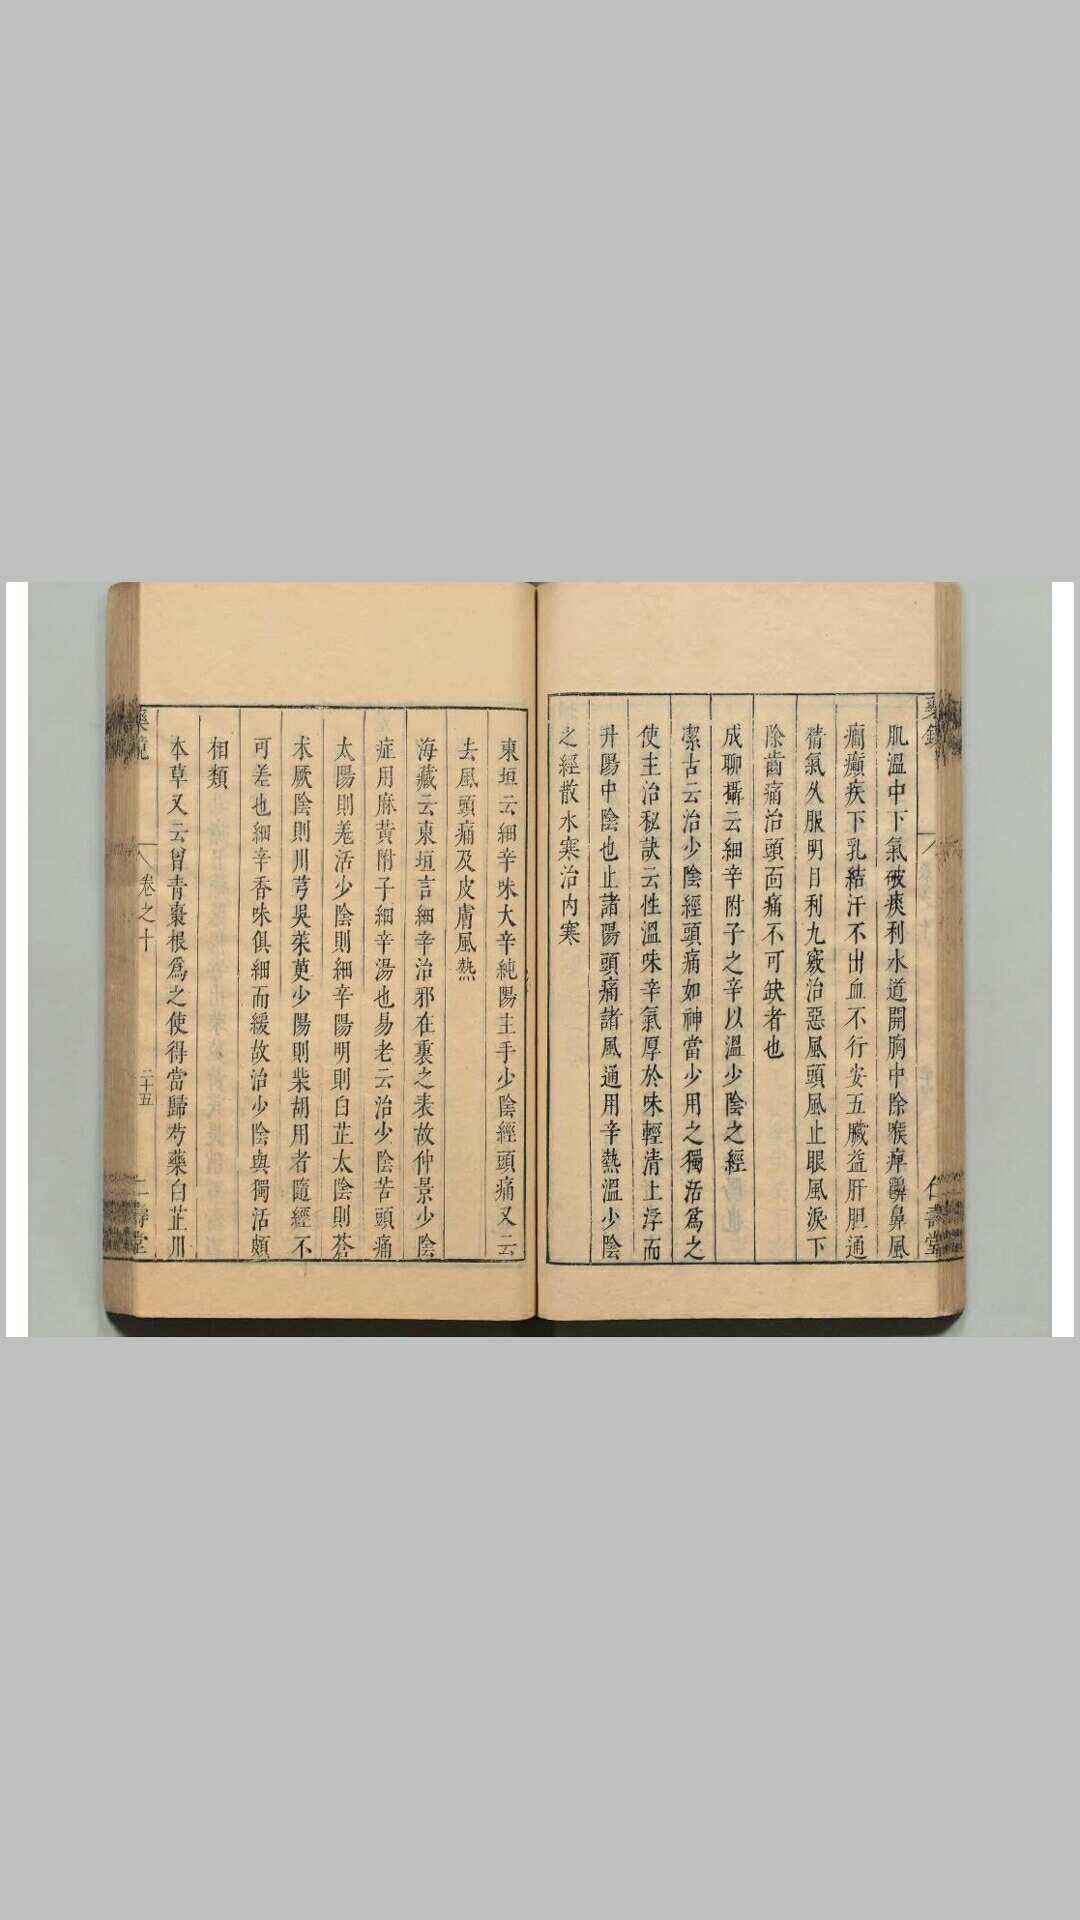 肌溫中下氣破痰利水道開胸中除喉痺齆鼻風
癇癲疾下乳結汗不出血不行安五臟益肝胆通
精氣久服明目利九竅治惡風頭風止眼風淚下
除齒痛治頭面痛不可缺者也
成聊攝云細辛附子之辛以溫少陰之經
潔古云治少陰經頭痛如神當少用之獨活爲之
使主治秘訣云性溫味辛氣厚於味輕清上浮而
升陽中陰也止諸陽頭痛諸風通用辛熱溫少陰
之經散水寒治內寒
東垣云細辛味大辛純陽主手少陰經頭痛又云
去風頭痛及皮膚風熱
海藏云東垣言細辛治邪在裏之表故仲景少陰
症用麻黃附子細辛湯也易老云治少陰苦頭痛
太陽則羗活少陰則細辛陽明則白芷太陰則蒼
朮厥陰則川芎吳茱萸少陽則柴胡用者隨經不
可差也細辛香味俱細而緩故治少陰與獨活頗
相類
本草又云曾青棗根爲之使得當歸芍藥白芷川
卷之十
二十五
壽堂
仁壽堂